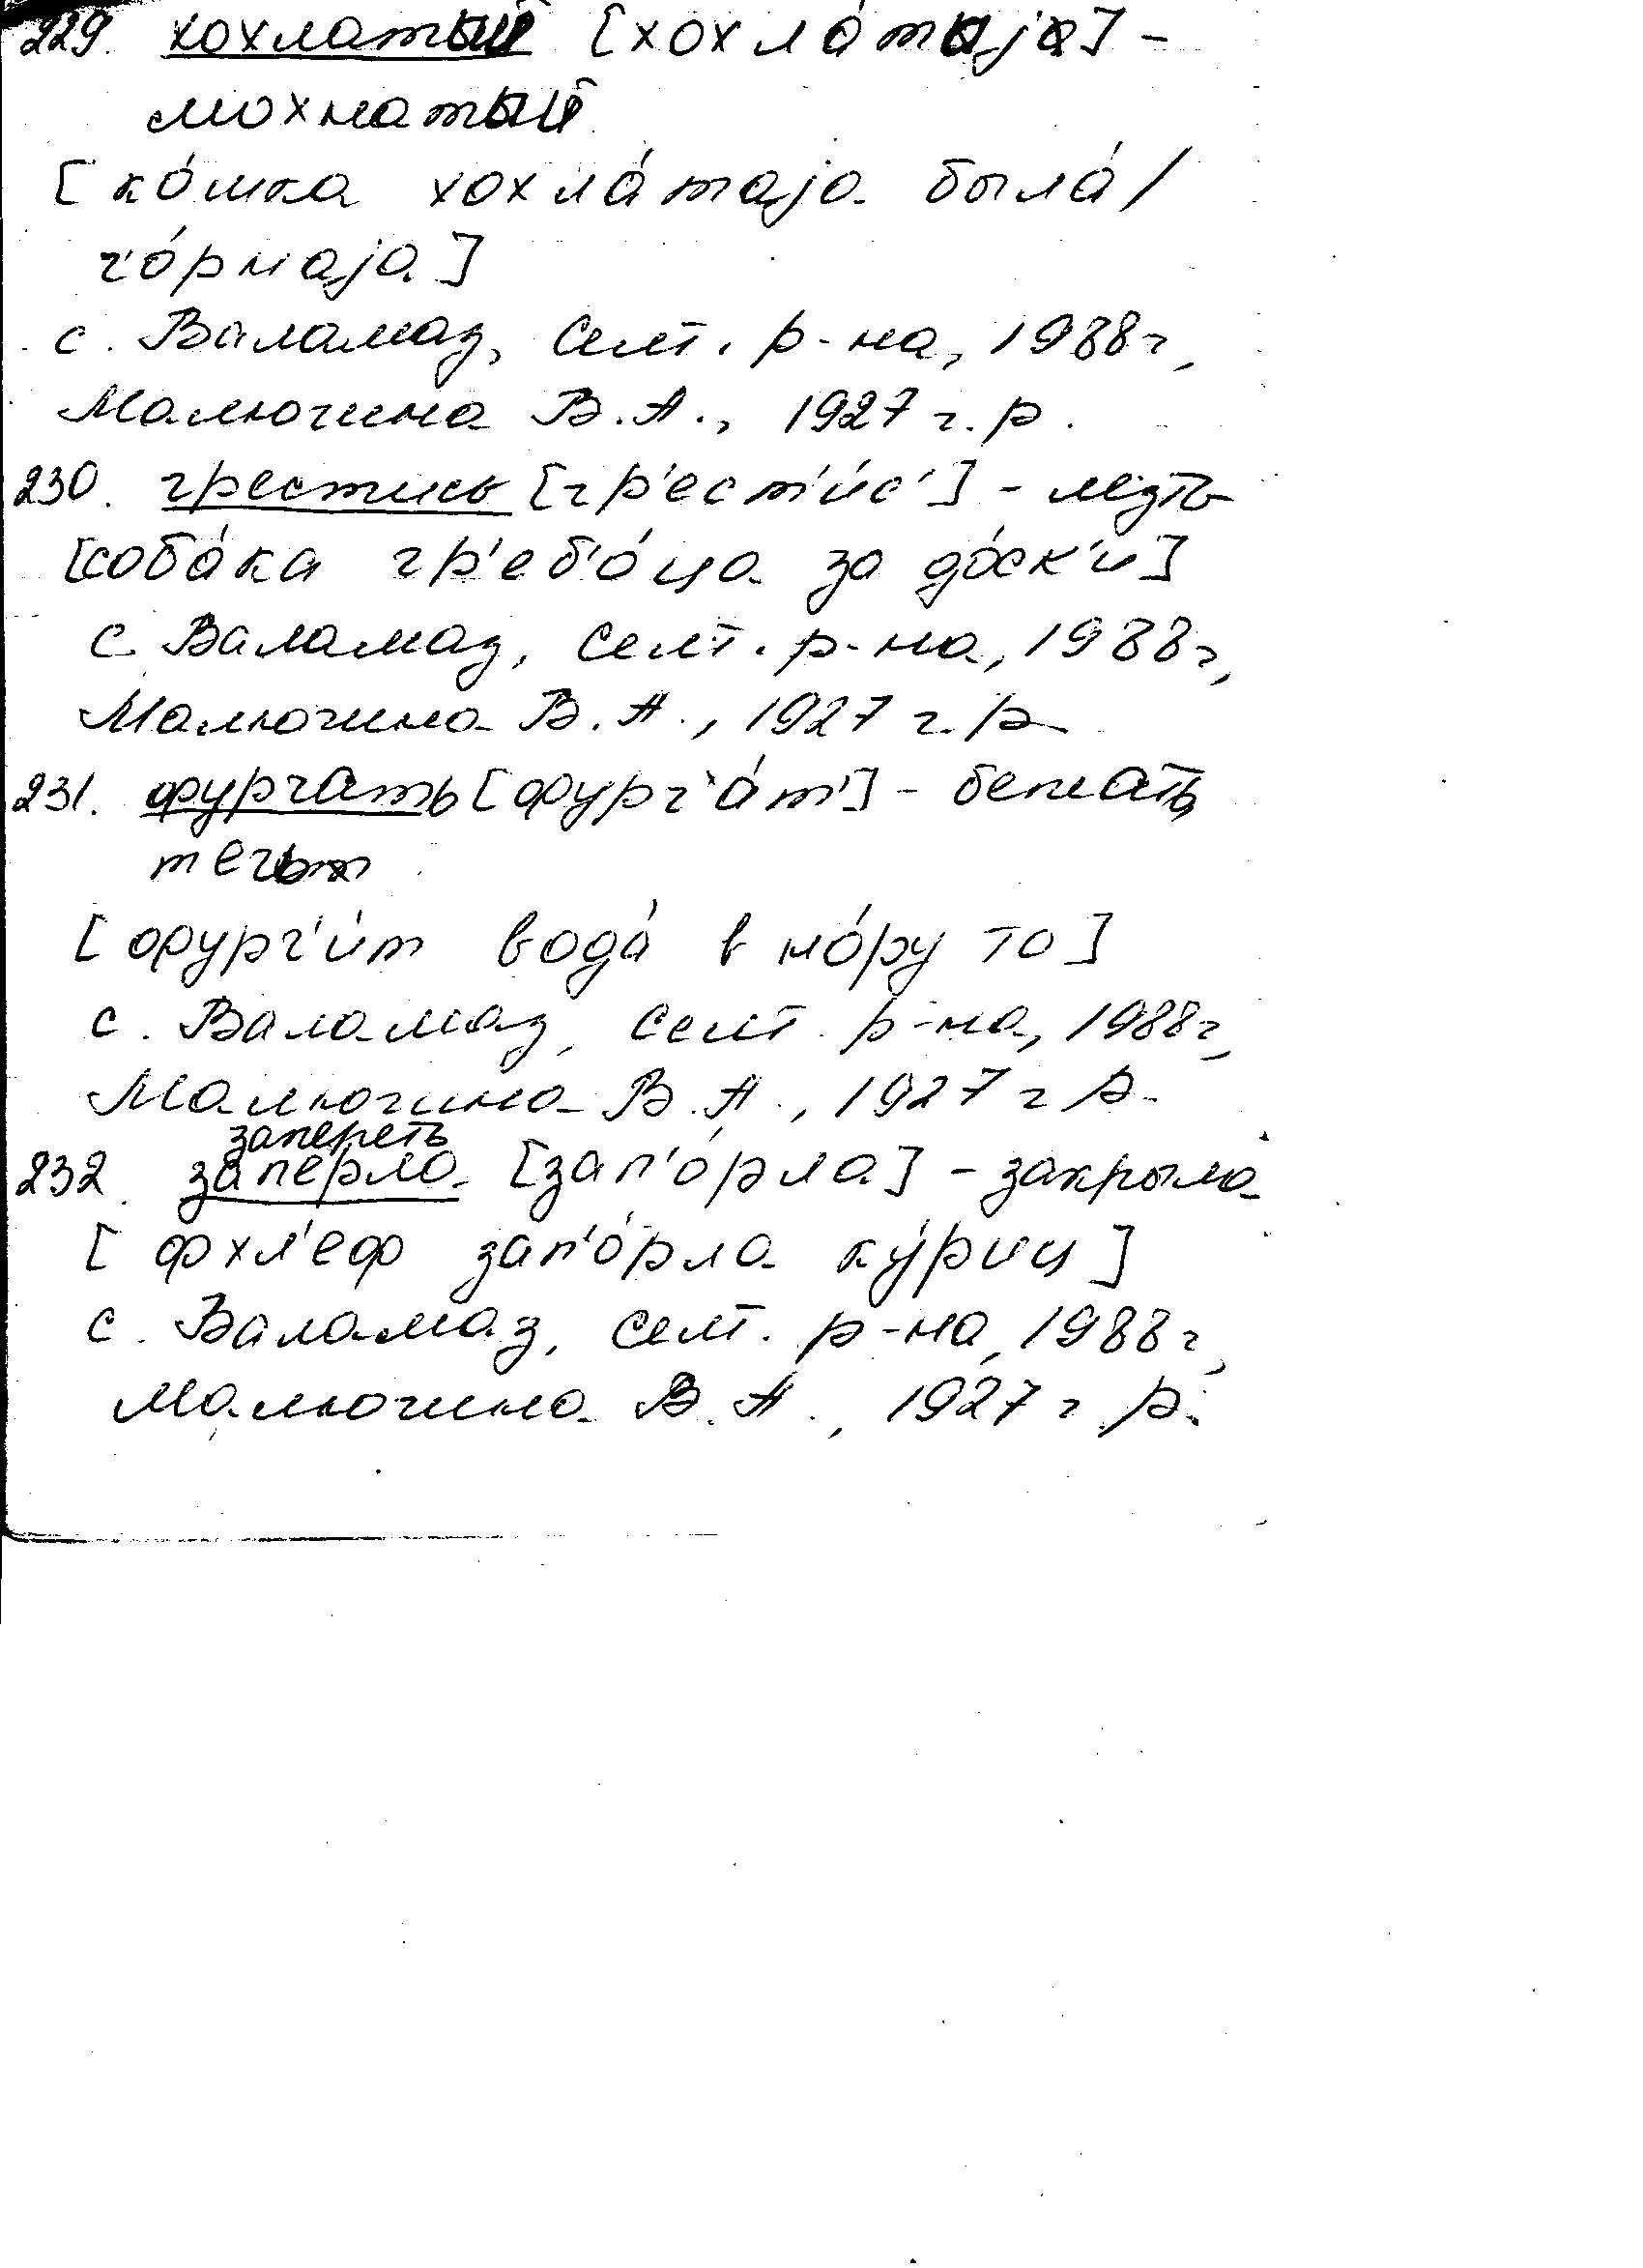 229. хохлатый [хохла́таjа] –
мохнатый
[ко́шка хохла́таjа была́/
ч'о́рнаjа]
с. Валамаз, Селт. р-на, 1988г,
Малючина В.А., 1927 г.р.
230. грестись [гр'ест'и́с'] – лезть
[соба́ка гр'еб'о́ца за до́ск'и]
с. Валамаз, Селт. р-на, 1988г,
Малючина В.А., 1927 г.р
231. фурчать [фурч'а́т'] – бежать
течь
[фурч'и́т вода́ в но́ру то]
с. Валамаз, Селт. р-на, 1988г,
Малючина В.А., 1927 г р.
запереть
232. заперла [зап'о́рла] – закрыла
[фхл'еф зап'о́рла ку́риц]
с. Валамаз, Селт. р-на, 1988г,
Малючина В.А., 1927 г р.